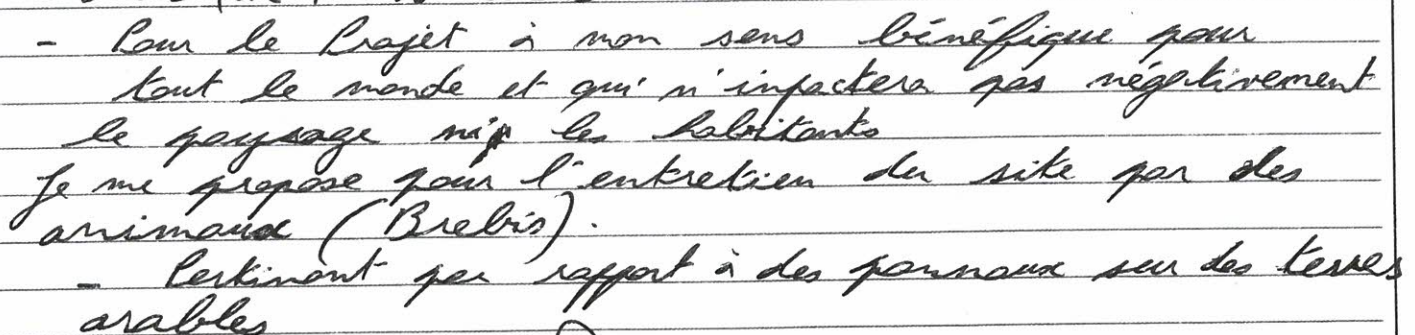 - Pour le Projet à mon sens bénéfique pour
tout le monde et qui n'impactera pas négativement
le paysage ni les habitants
Je me propose pour l'entretien du site par des
animaux (Brebis).
- Pertinent par rapport à des panneaux sur des terres
arables